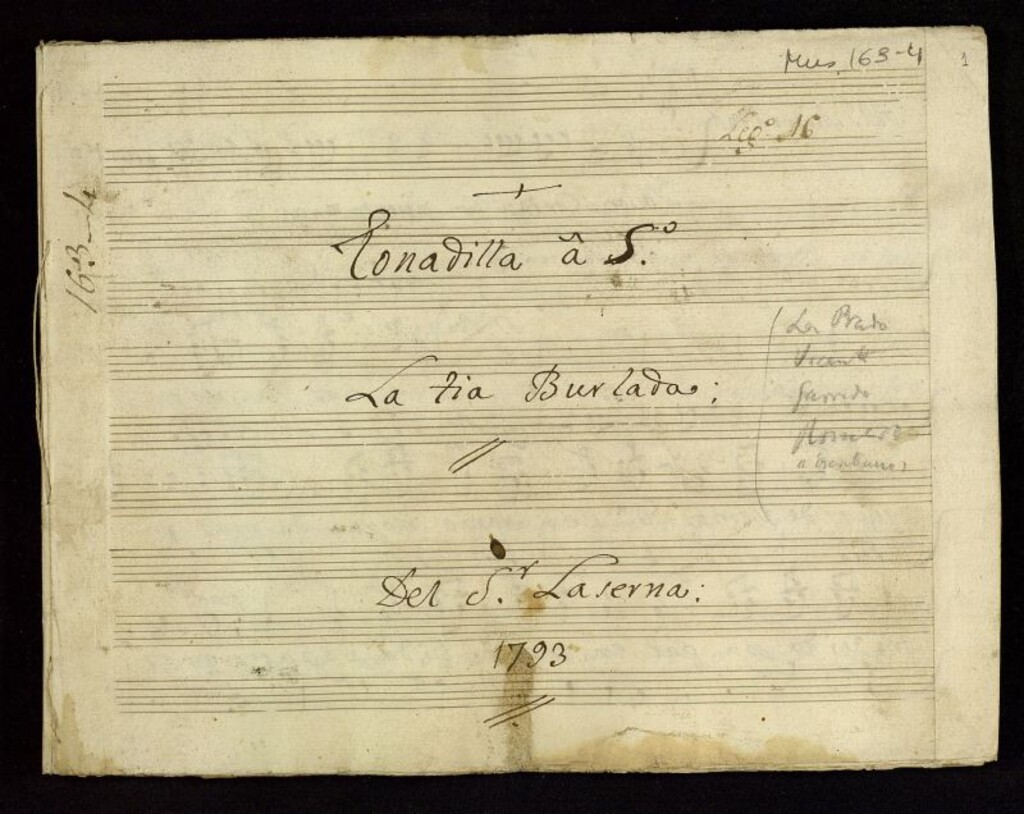 Mus 163-4
1
Leg.º 16
163-4
Tonadilla â S.º
La tia Burlada:
La Prado
Vicente
Garrido
Romero
Del S.r Laserna:
1793